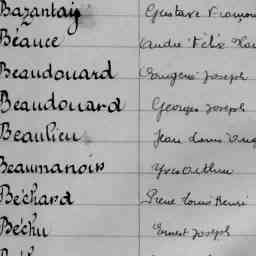 Bazantay Gustave
Béance André Félix
Beaudouard Eugène Joseph
Beaudouard Georges Joseph
Beaulieu Jean Louis
Beaumanoir Yves Arthur
Béchard Pierre Louis Henri
Béchu Ernest Joseph